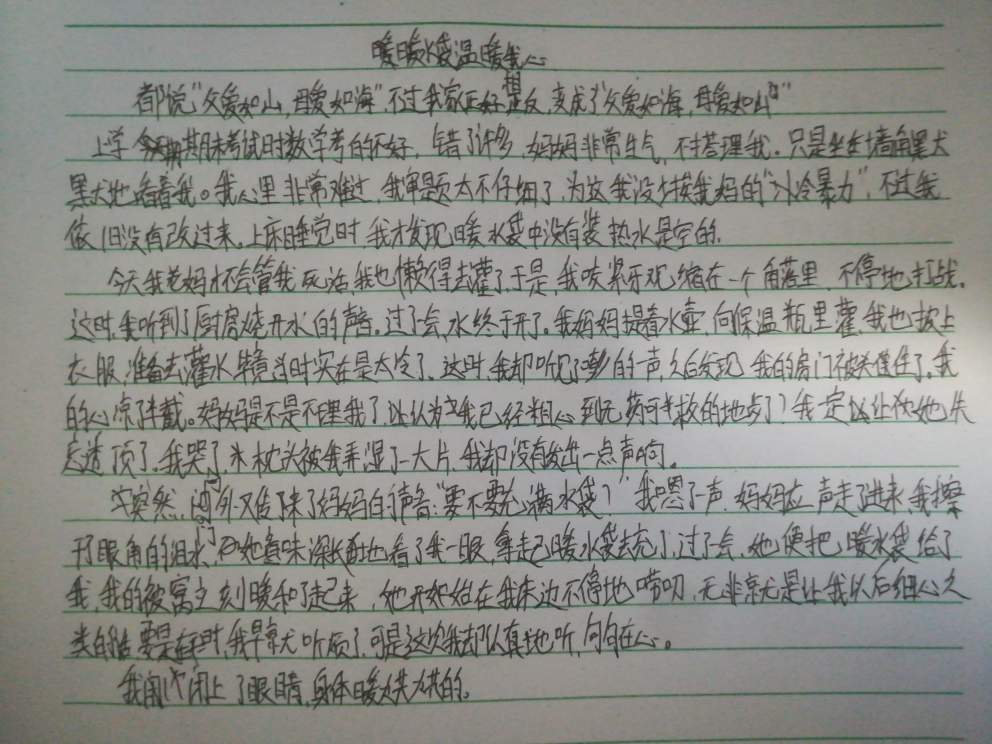 暖暖水袋温暖我心
都说"父爱如山,母爱如海"不过我家正好想反,变成了"父爱如海,母爱如山"
上学期期末考试时数学考的不好,错了许多,妈妈非常生气,不搭理我.只是坐在墙角里大
地看着我。我心里非常难过,我审题太不仔细了,为这我没少挨我妈的"冷暴力",不过我
依旧没有改过来.上床睡觉时,我才发现暖水袋中没有装热水是空的.
今天我老妈才不会管我死活,我也懒得去灌了,于是,我咬紧牙观,缩在一个角落里,不停地打战.
这时,我听到了厨房烧开水的声音.过了会,水终于开了.我妈妈提着水壶,向保温瓶里灌,我也披上
衣服,准备去灌水,毕竟当时实在是太冷了.这时,我却听见了嘭的一声,久后发现,我的房门被关住了,我
的心凉了半截.妈妈是不是不理我了,让认为我已经粗心到无药可救的地步了?我一定以让她失
透顶了.我哭了,枕头被我弄湿了一大片,我却没有发出一点声响。
突然,门外又传来了妈妈的声音:"要不要充满水袋?"我嗯了一声,妈妈应声走了进来,我擦
干眼角的泪水,她意味深长地看了我一眼,拿起暖水袋去充了,过了会,她便把暖水袋给了
我,我的被窝立刻暖和了起来,她开始在我床边不停地唠叨,无非就是让我以后细心之
类的话.要是平时,我早就听烦了,可是这次我却认真地听,句句在心。
我闭上了眼睛,身体暖烘烘的.